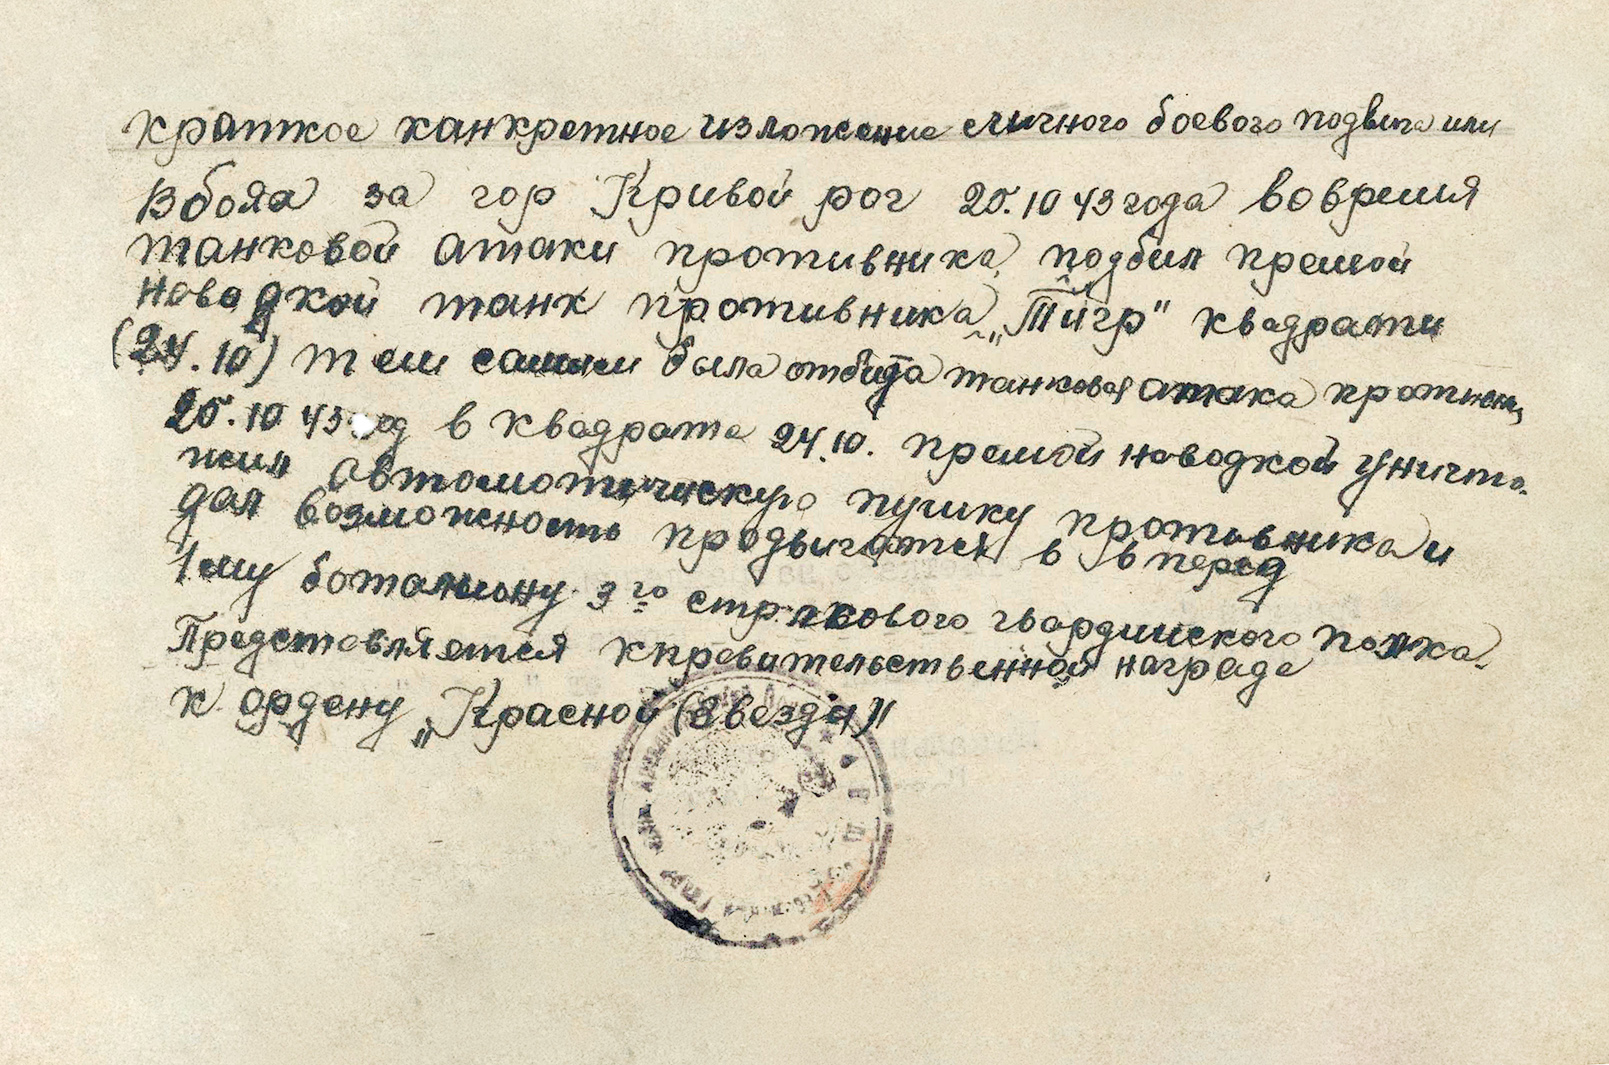 Краткое канкретное изложение личного боевого подвига или
В бояа за гор Кривой рог 25.10 43 года вовремия
танковой атаки противника, подбил премой
наводкой танк противника „Тигр" квадрати
(24.10) тем самым была отбита танковая атака противни
25.10 43 год в квадрате 24.10. премой наводкой уничто-
жил автомотическую пушку противника и
дал возможность продвигатся в в перед
1му баталиону 3го стрлкового гвардииского полка.
Представляется кправительственной награде
к ордену „Красной (Звезда)"